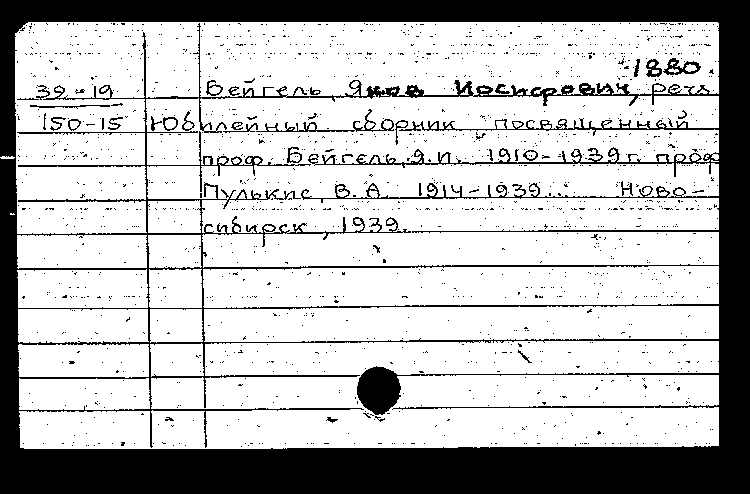 1880.
39-19 Бейгель, Яков Иосифович, речь
150-15 Юбилейный сборник посвященный
проф. Бейгель, Я.И. 1910-1939 г. проф
Пулькис, В.А. 1914-1939... Ново-
сибирск, 1939.